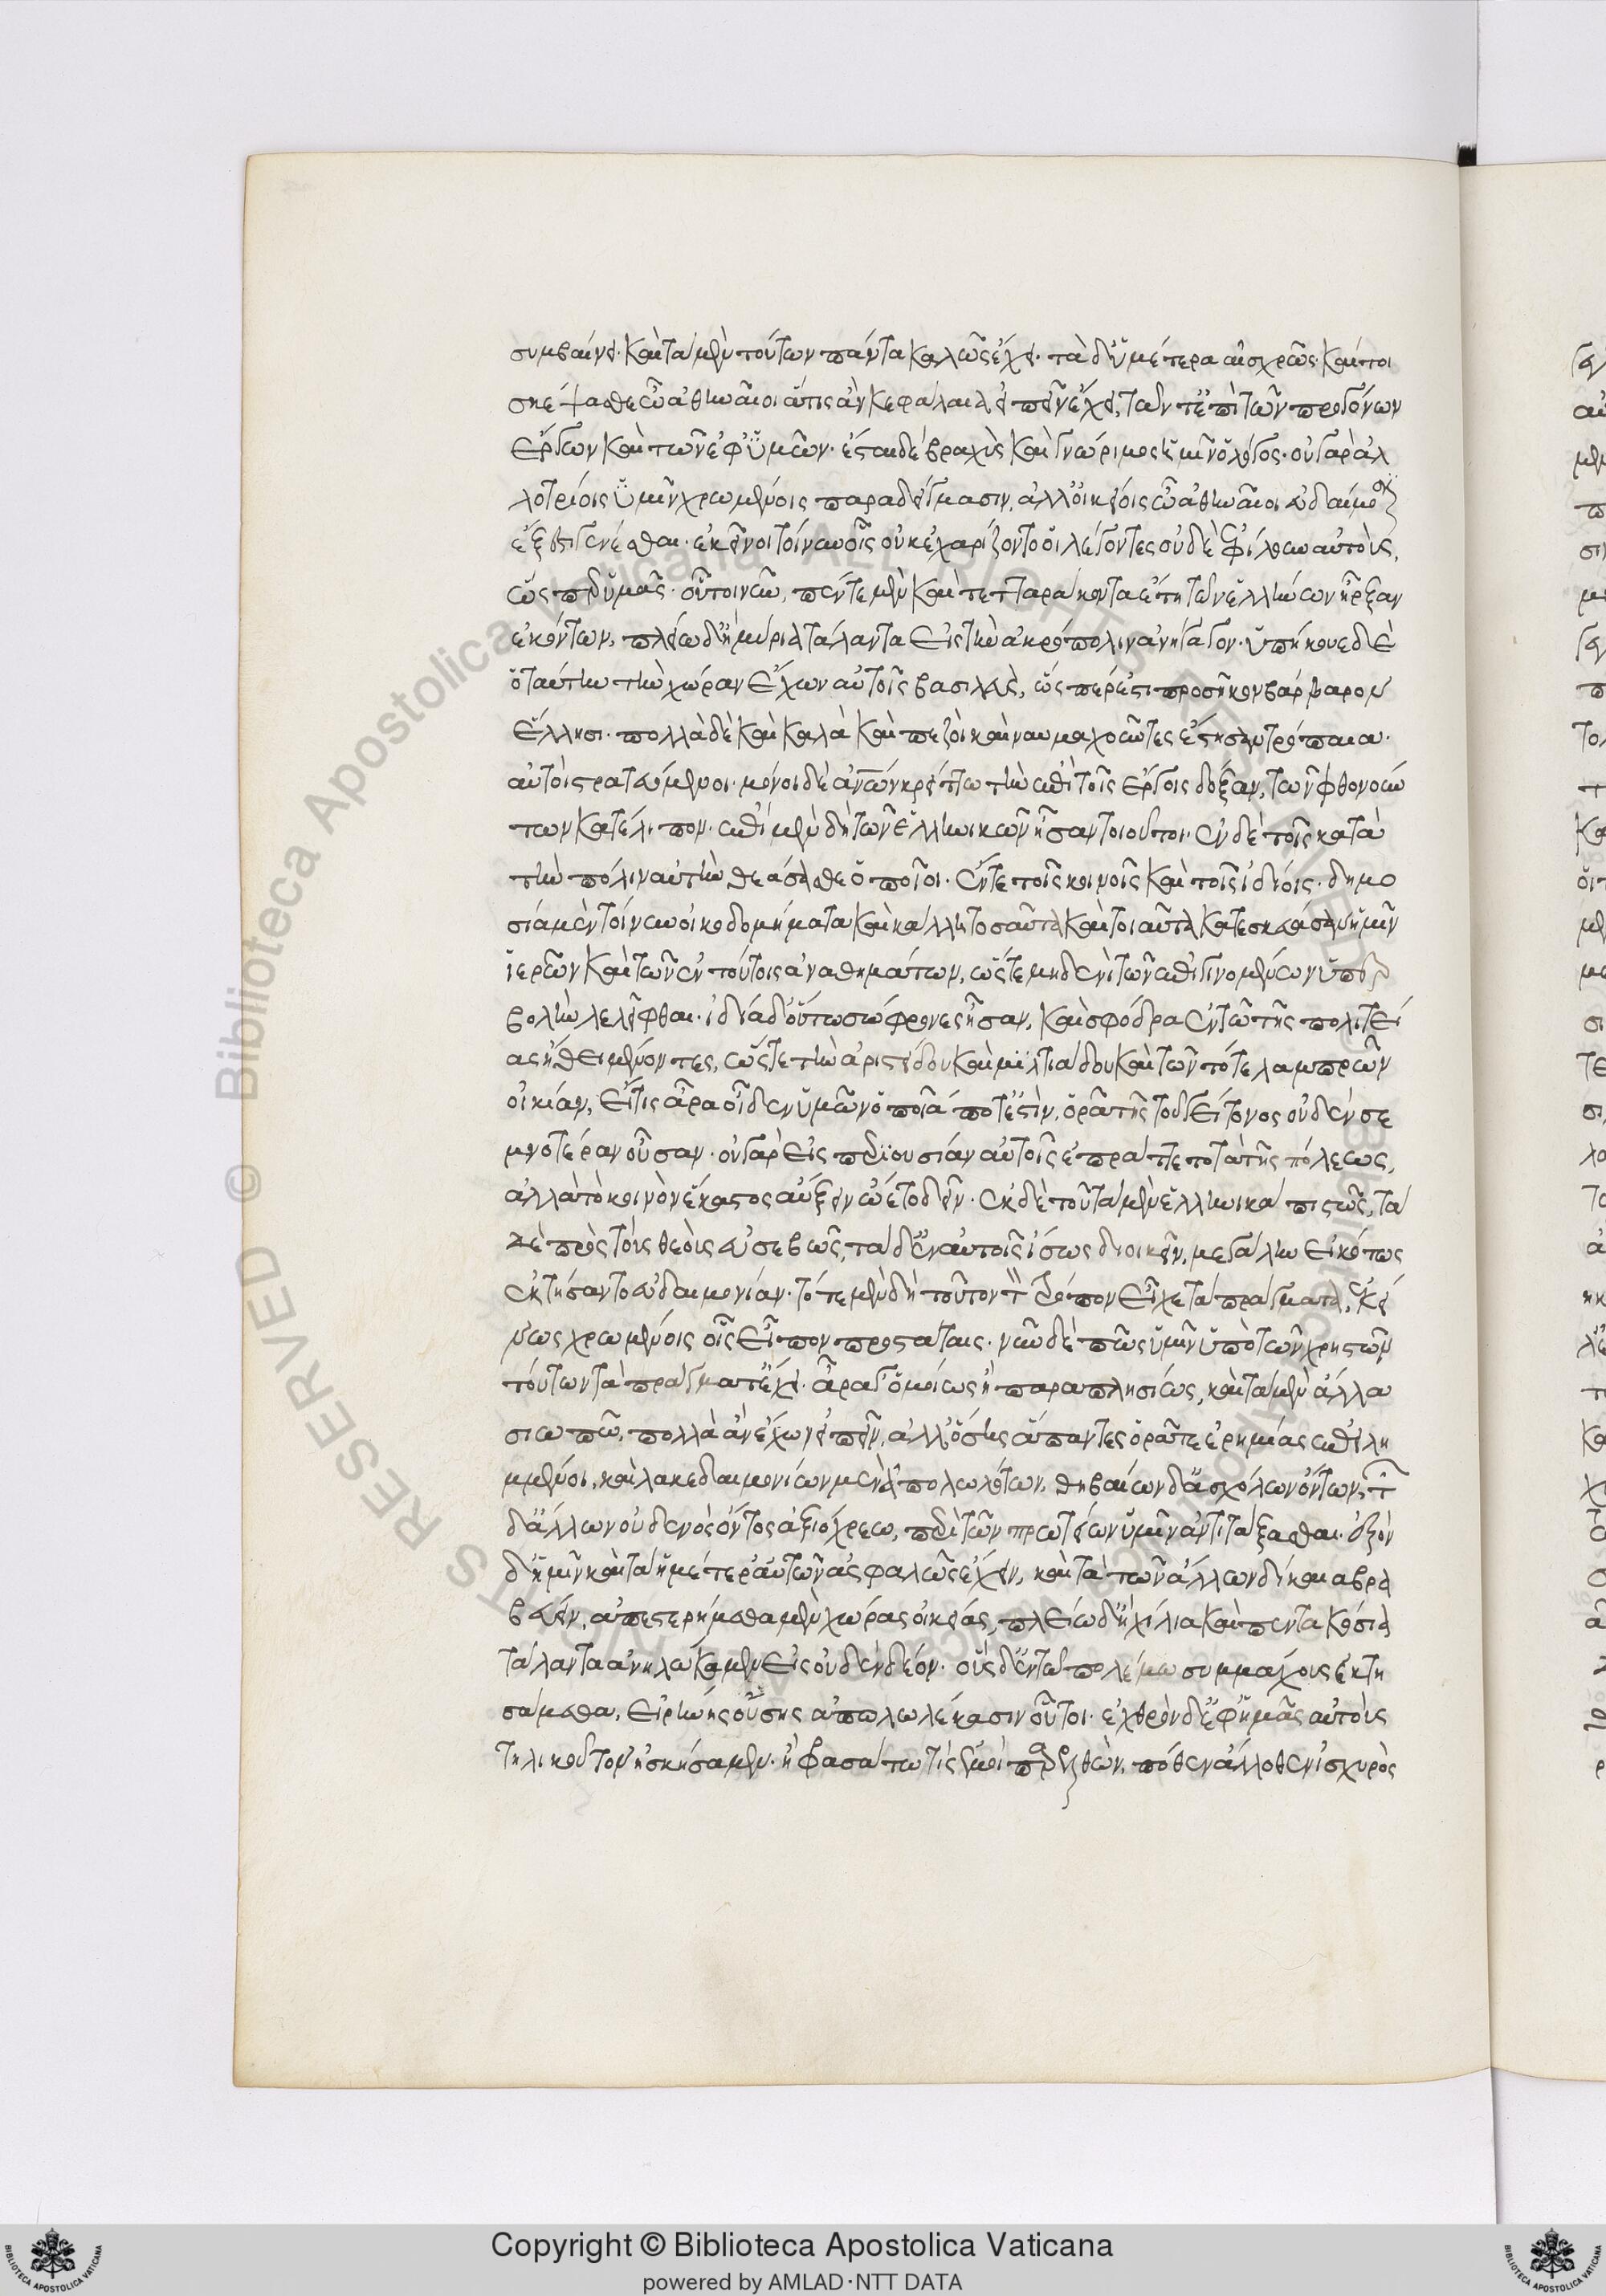 συμβαίνει· καὶ τὰ μὲν τούτων πάντα καλῶς ἔχει· τὰ δ' ὑμέτερα αἰσχρῶς· καίτοι
σκέψασθε ὦ ἀθηναῖοι ἅτις ἂν κεφάλαια εἰπεῖν ἔχει, τῶν τ' ἐπὶ τῶν προγόνων
ἔργων καὶ τῶν ἐφ' ὑμῶν· ἔσται δὲ βραχὺς καὶ γνώριμος ὑμῖν ὁ λόγος· οὐ γὰρ ἀλ
λοτρίοις ὑμῖν χρωμένοις παραδείγμασιν, ἀλλ' οἰκείοις ὦ ἀθηναῖοι εὐδαίμοσιν
ἔξεστι γενέσθαι· ἐκεῖνοι τοίνυν οἷς οὐκ ἐχαρίζοντο οἱ λέγοντες οὐδὲ ἐφίλουν αὐτοὺς,
ὥσπερ ὑμᾶς· οὗτοι νῦν, πέντε μὲν καὶ τετταράκοντα ἔτη τῶν ἑλλήνων ἦρξαν
ἑκόντων, πλείω δ' ἢ μύρια τάλαντα εἰς τὴν ἀκρόπολιν ἀνήγαγον· ὑπήκουε δὲ
ὁ ταύτην τὴν χώραν ἔχων αὐτοῖς βασιλεὺς, ὥσπερ ἐστὶ προσῆκον βάρβαρον
ἕλλησι· πολλὰ δὲ καὶ καλὰ καὶ πεζοὶ καὶ ναυμαχοῦντες ἔστησαν τρόπαια·
αὐτοὶ στρατευόμενοι· μόνοι δὲ ἀνθρώπων κρείττω τὴν ἐπὶ τοῖς ἔργοις δόξαν, τῶν φθονούν
των κατέλιπον· ἐπὶ μὲν δὴ τῶν ἑλληνικῶν ἦσαν τοιοῦτοι· ἐν δὲ τοῖς κατὰ
τὴν πόλιν αὐτὴν θεάσασθε ὁποῖοι· ἔν τε τοῖς κοινοῖς καὶ τοῖς ἰδίοις· δημο
σία μὲν τοίνυν οἰκοδομήματα καὶ κάλλη τοσαῦτα καὶ τοιαῦτα κατεσκεύασαν ἡμῖν
ἱερῶν καὶ τῶν ἐν τούτοις ἀναθημάτων, ὥστε μηδενὶ τῶν ἐπιγινομένων ὑπερ
βολὴν λελεῖφθαι· ἰδία δ' οὕτω σώφρονες ἦσαν, καὶ σφόδρα ἐν τῶ τῆς πολιτεί
ας ἤθει μένοντες, ὥστε τὴν ἀριστείδου καὶ μιλτιάδου καὶ τῶν τότε λαμπρῶν
οἰκίαν, εἴ τις ἄρα οἶδεν ὑμῶν ὁποία ποτέ ἐστὶν, ὁρᾶ τῆς τοῦ γείτονος οὐδὲν σε
μνοτέραν οὖσαν· οὐ γὰρ εἰς περιουσίαν αὐτοῖς ἐπράττετο τὰ τῆς πόλεως,
ἀλλὰ τὸ κοινὸν ἕκαστος αὔξειν ᾤετο δεῖν· ἐκ δὲ τοῦ τὰ μὲν ἑλληνικὰ πιστῶς, τὰ
δὲ πρὸς τοὺς θεοὺς εὐσεβῶς, τὰ δ' ἐν αὐτοῖς ἴσως διοικεῖν, μεγάλην εἰκότως
ἐκτήσαντο εὐδαιμονίαν· τότε μὲν δὴ τοῦτον τὸν τρόπον εἶχε τὰ πράγματα, ἐκεί
νως χρωμένοις οἷς εἶπον προστάταις· νῦν δὲ πῶς ὑμῖν ὑπὸ τῶν χρηστῶν
τούτων τὰ πράγματ' ἔχει· ἆρά γ' ὁμοίως ἢ παραπλησίως, καὶ τὰ μὲν ἄλλα
σιωπῶ, πολλὰ ἂν ἔχων εἰπεῖν, ἀλλ' ὅσης ἅπαντες ὁρᾶτε ἐρημίας ἐπειλη
μμένοι, καὶ λακεδαιμονίων μὲν ἀπολωλότων, θηβαίων δ' ἀσχόλων ὄντων, τῶν
δ' ἄλλων οὐδενὸς ὄντος ἀξιόχρεω, περὶ τῶν πρωτείων ὑμῖν ἀντιτάξασθαι· ἐξὸν
δ' ἡμῖν καὶ τὰ ἡμέτερ' αὐτῶν ἀσφαλῶς ἔχειν, καὶ τὰ τῶν ἄλλων δίκαια βρα
βεύειν, ἀπεστερήμεθα μὲν χώρας οἰκείας, πλείω δ' ἢ χίλια καὶ πεντακόσια
τάλαντα ἀνηλώκαμεν εἰς οὐδὲν δέον· οὓς δ' ἐν τῶ πολέμω συμμάχους ἐκτη
σάμεθα, εἰρήνης οὔσης ἀπολωλέκασιν οὗτοι· ἐχθρὸν δ' ἐφ' ἡμᾶς αὐτοὺς
τηλικοῦτον ἠσκήσαμεν· ἢ φρασάτω τὶς ἐμοὶ παρελθὼν, πόθεν ἄλλοθεν ἰσχυρὸς
Copyright © Biblioteca Apostolica Vaticana
powered by AMLAD·NTT DATA